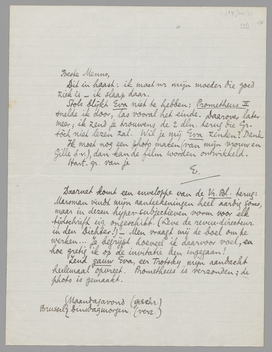 Beste Menno,
Dit in haast: ik moet nr mijn moeder die goed
ziek is — ik slaap daar.
Stols blijkt Eva niet te hebben; Prometheus II
snelde ik door, las vooral het einde. Daarover later
meer; ik zend je trouwens de 2 dln. terug die Gr-
sch niet lezen zal. Wil je mij Eva zenden? Denk
ik moet nog een photo maken (van mijn vrouw en
Gille b.v.), dan kan de film worden ontwikkeld.
Hart. gr. van je
E.
Daarnet komt een enveloppe van de Vr. Bl. terug:
Marsman vindt mijn aanteekeningen heel aardig soms,
maar in dezen hyper-subjectieven vorm voor elk
tijdschrift ongeschikt. (Leve de revue-directeur
in den Dichter!) — Men vraagt mij de boel om te
werken... Je begrijpt hoeveel ik daarvoor voel, en
hoe gretig ik op de invitatie ben ingegaan!
Zend gauw Eva, een Trotsky mijn aandacht
heelemaal opvreet. Prometheus is verzonden; de
photo is gemaakt.
(Maandagavond (geschr.)
Brussel Dinsdagmorgen (verz.)